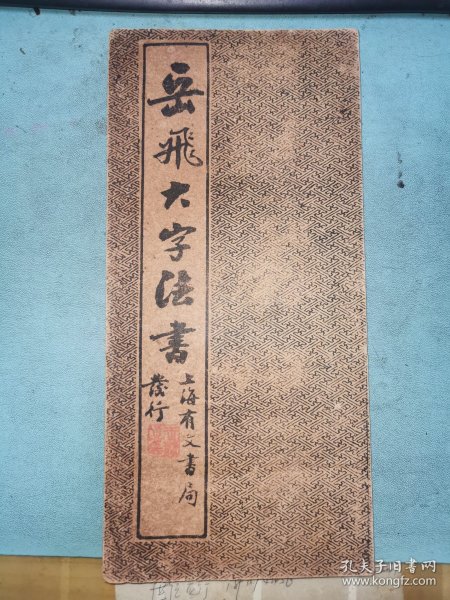 岳飛大字法書
上海有文書局
發行
孔夫子旧书网
www.kongfz.com